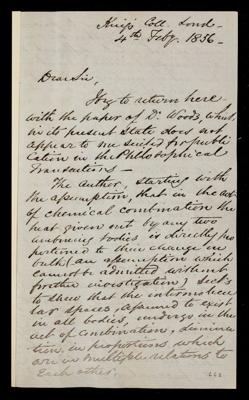 King's Coll. Lond.
4th Feby. 1856
Dear Sir,
I beg to return here
with the paper of Dr. Woods, which
in its present state does not
appear to me suited for publi
cation in the Philosophical
Transactions –
The Author, starting with
the assumption, that in the act
of chemical combination the
heat given out by any two
combining bodies is directly pro
portioned to their change in
bulk (an assumption which
cannot be admitted without
further investigation) seeks
to shew that the intermolecu
lar spaces, assumed to exist
in all bodies, undergo in the
act of combination, diminu
tion, in proportions which
are in multiple relations to
each other.